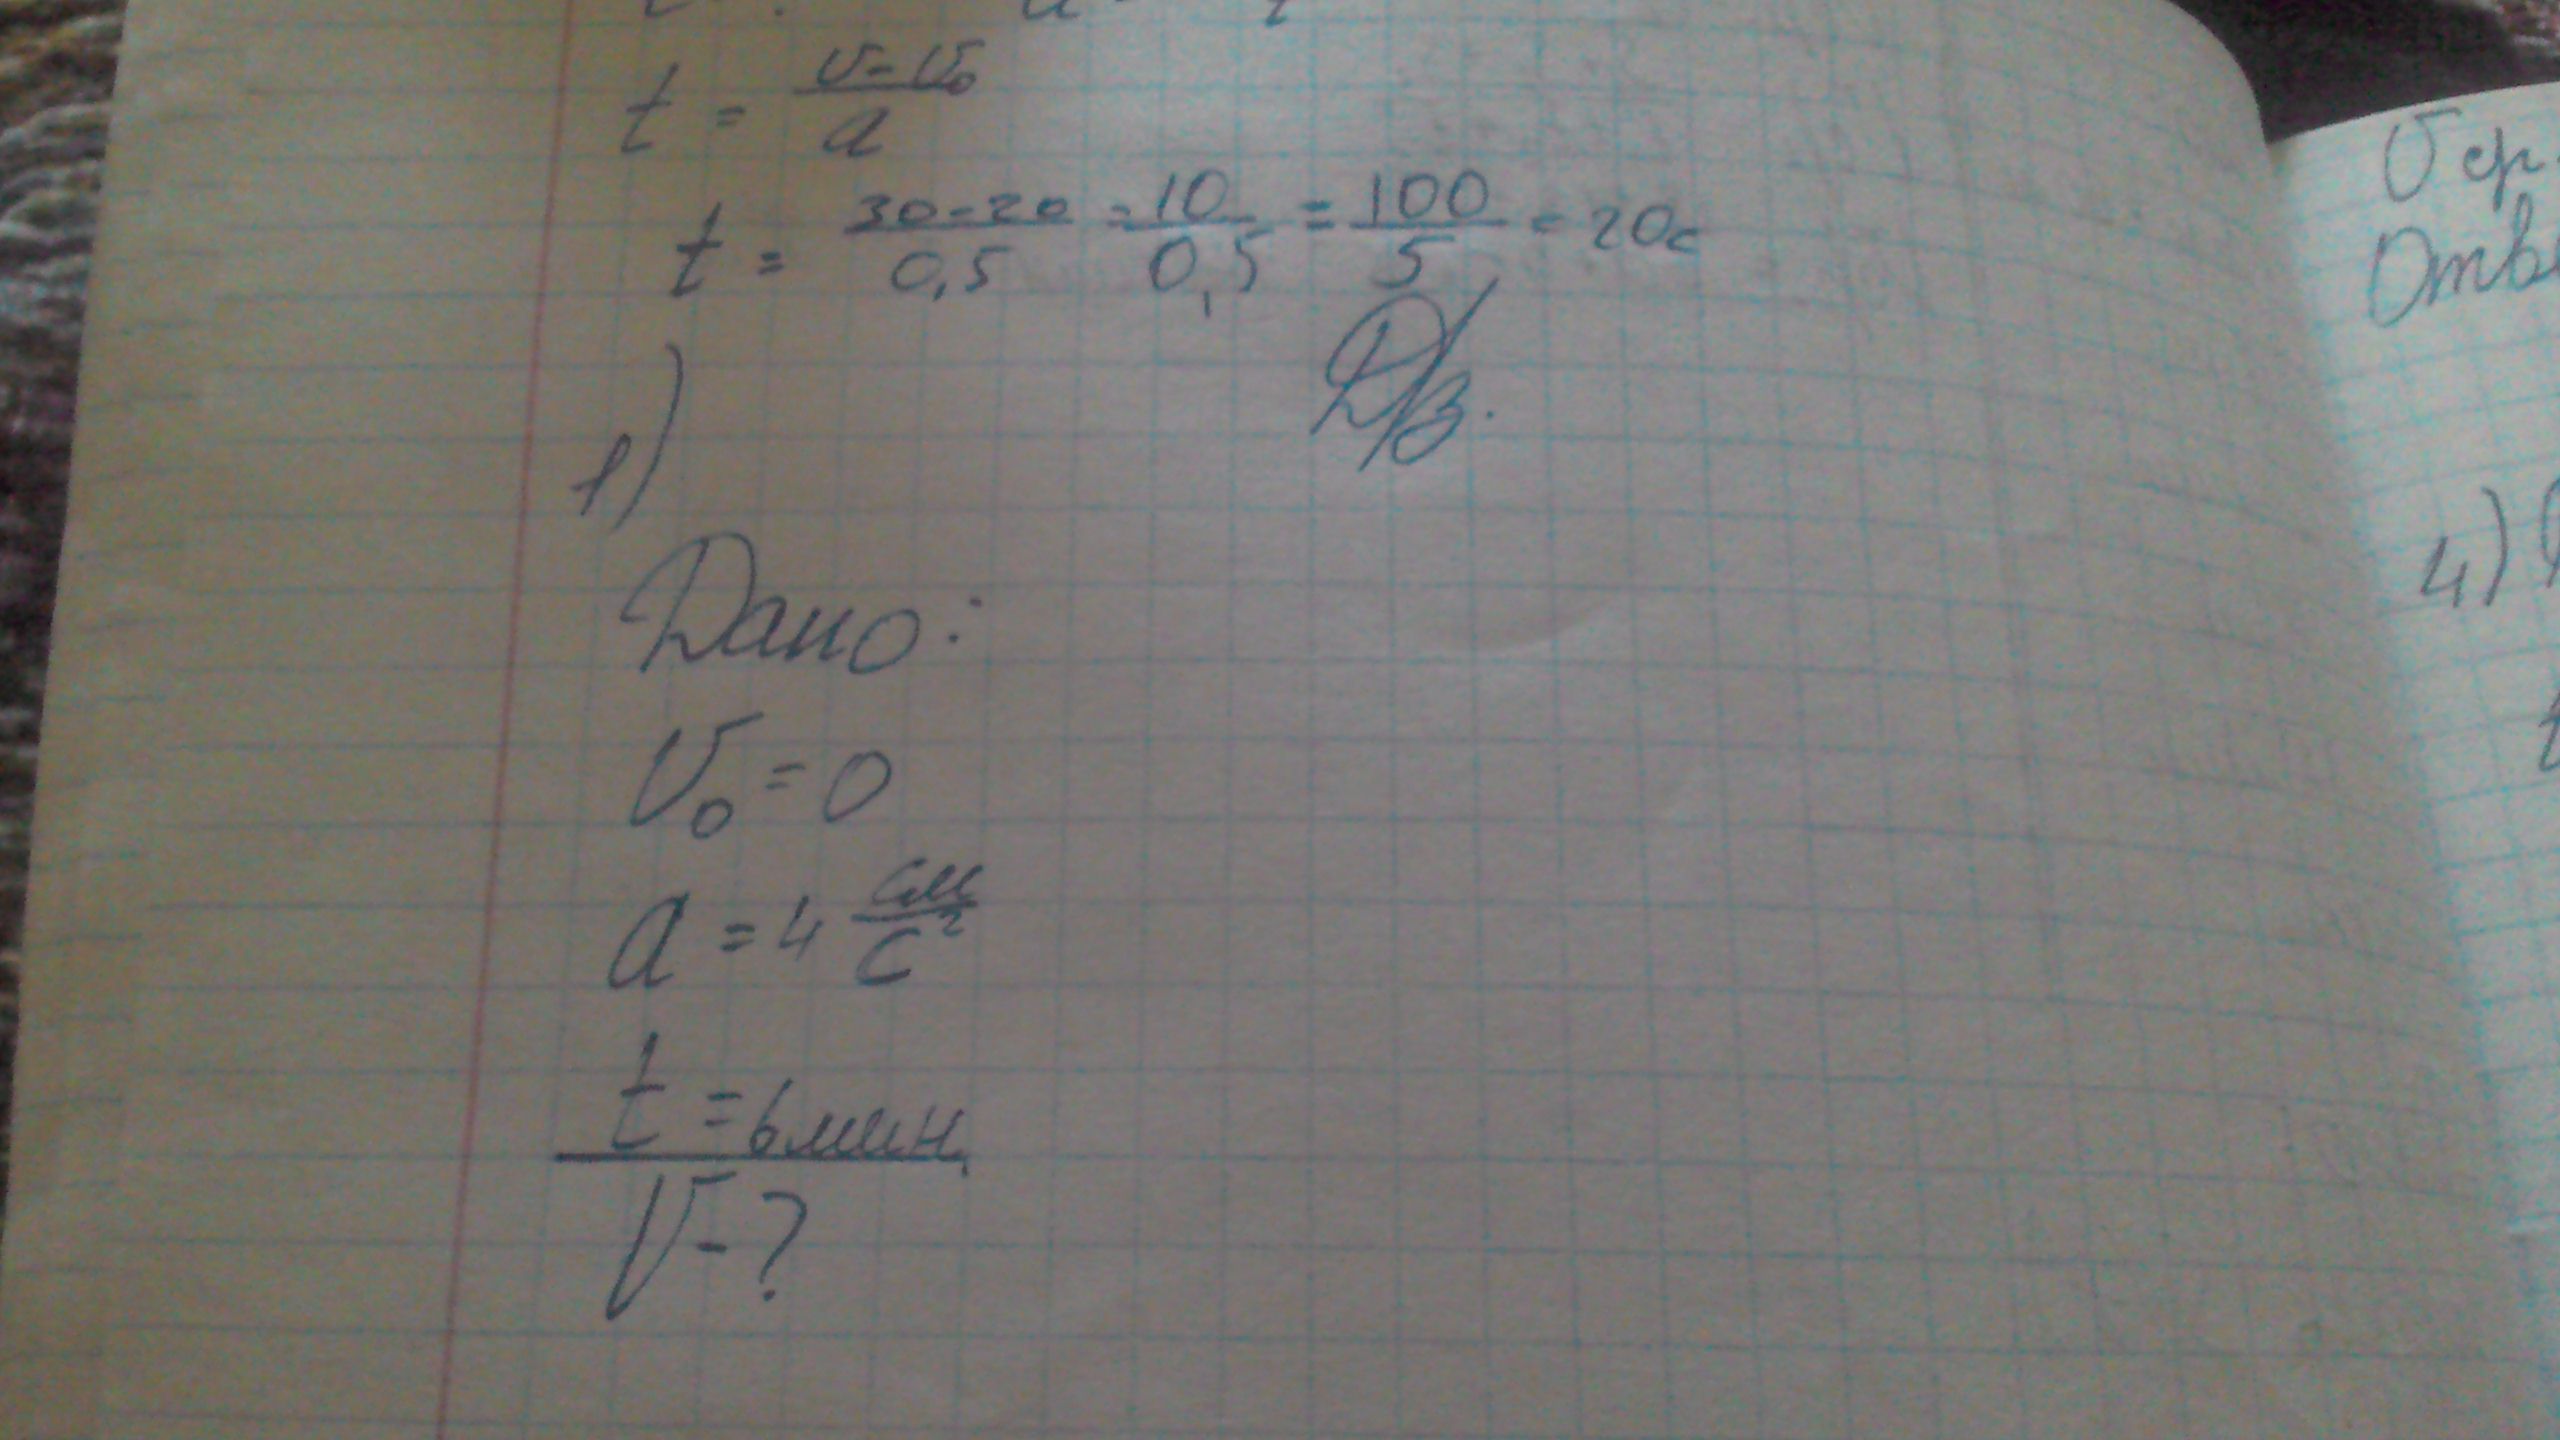 t = (v - v₀)/a
t = (30-20)/0,5 = 10/0,5 = 100/5 = 20с
Д/з.
1)
Дано:
v₀ = 0
a = 4 см/с²
t = 6 мин.
v - ?
v ср.
4)